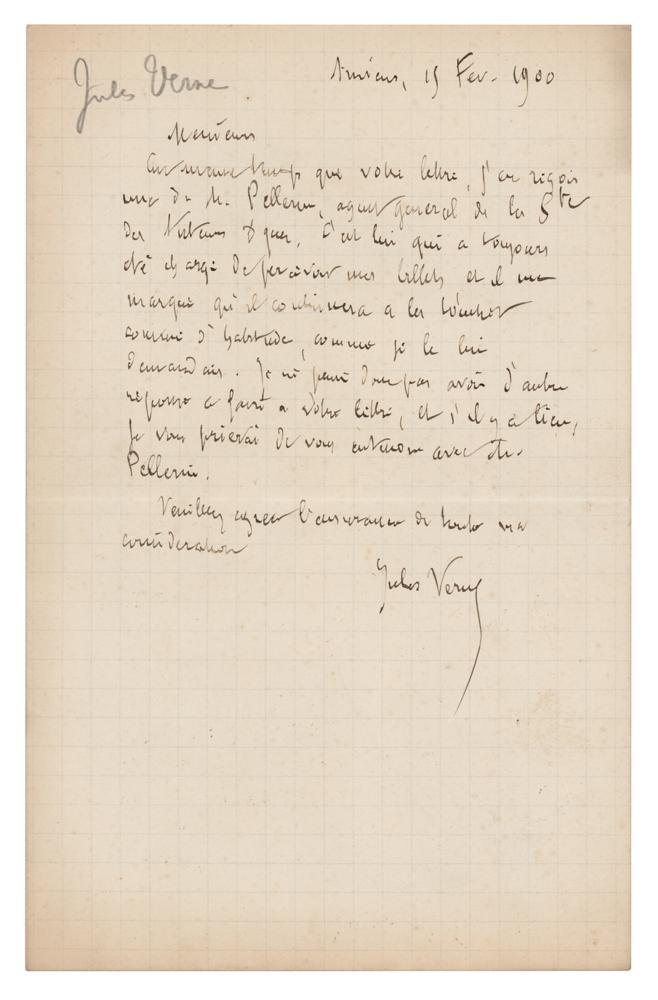 Jules Verne
Amiens, 15 Fev. 1900
Monsieur
En même temps que votre lettre, j'en reçois
une de M. Pellerin, agent général de la Sté
des Auteurs D. C'est lui qui a toujours
été chargé de percevoir mes billets et il me
marque qu'il continuera à les toucher
comme d'habitude, comme je le lui
demandais. Je ne puis donc pas avoir d'autre
réponse à faire à votre lettre, et s'il y a lieu,
je vous prierai de vous entendre avec M.
Pellerin.
Veuillez agréer l'assurance de toute ma
considération
Jules Verne